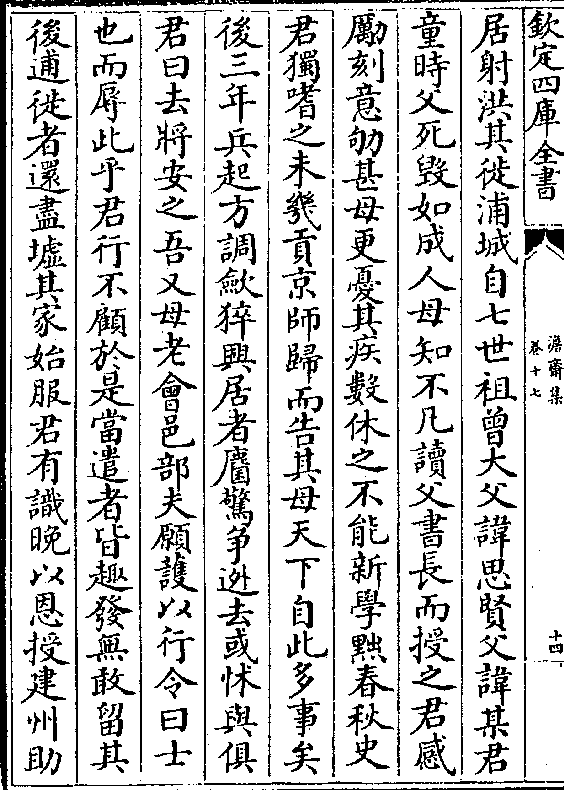 欽定四庫全書
澹齋集
卷十七
十四
居射洪其徙浦城自七世祖曾大父諱思賢父諱某君
童時父死毀如成人母知不凡讀父書長而授之君感
勵刻意劬甚母更憂其疾數休之不能新學黜春秋史
君獨嗜之未幾貢京師歸而告其母天下自此多事矣
後三年兵起方調歛猝興居者麕驚争迯去或怵與俱
君曰去將安之吾又母老會邑部夫願護以行令曰士
也而辱此乎君行不顧於是當遣者皆趣發無敢留其
後逋徙者還盡墟其家始服君有識晚以恩授建州助